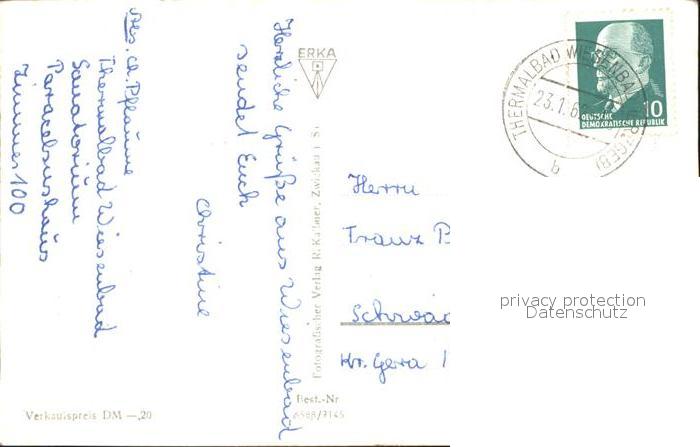 Abs. Ch. Pflaume
Thermalbad Wiesenbad
Sanatorium
Paracelsushaus
Zimmer 100
Herzliche Grüße aus Wiesenbad
sendet Euch
Christine
ERKA
Fotografischer Verlag R. Kallmer, Zwickau i. S.
Best.-Nr
6588/7145
Verkaufspreis DM —,20
THERMALBAD WIESENBAD (ERZGEB)
23.1.6
b
10
DEUTSCHE
DEMOKRATISCHE REPUBLIK
Herrn
Franz
Kr. Gera
privacy protection
Datenschutz